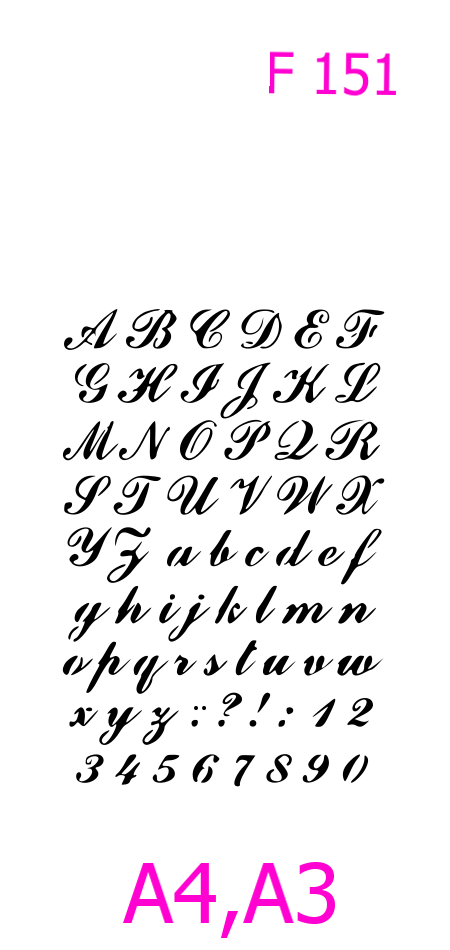 F 151
A B C D E F
G H I J K L
M N O P Q R
S T U V W X
Y Z a b c d e f
g h i j k l m n
o p q r s t u v w
x y z : ? ! : 1 2
3 4 5 6 7 8 9 0
A4,A3